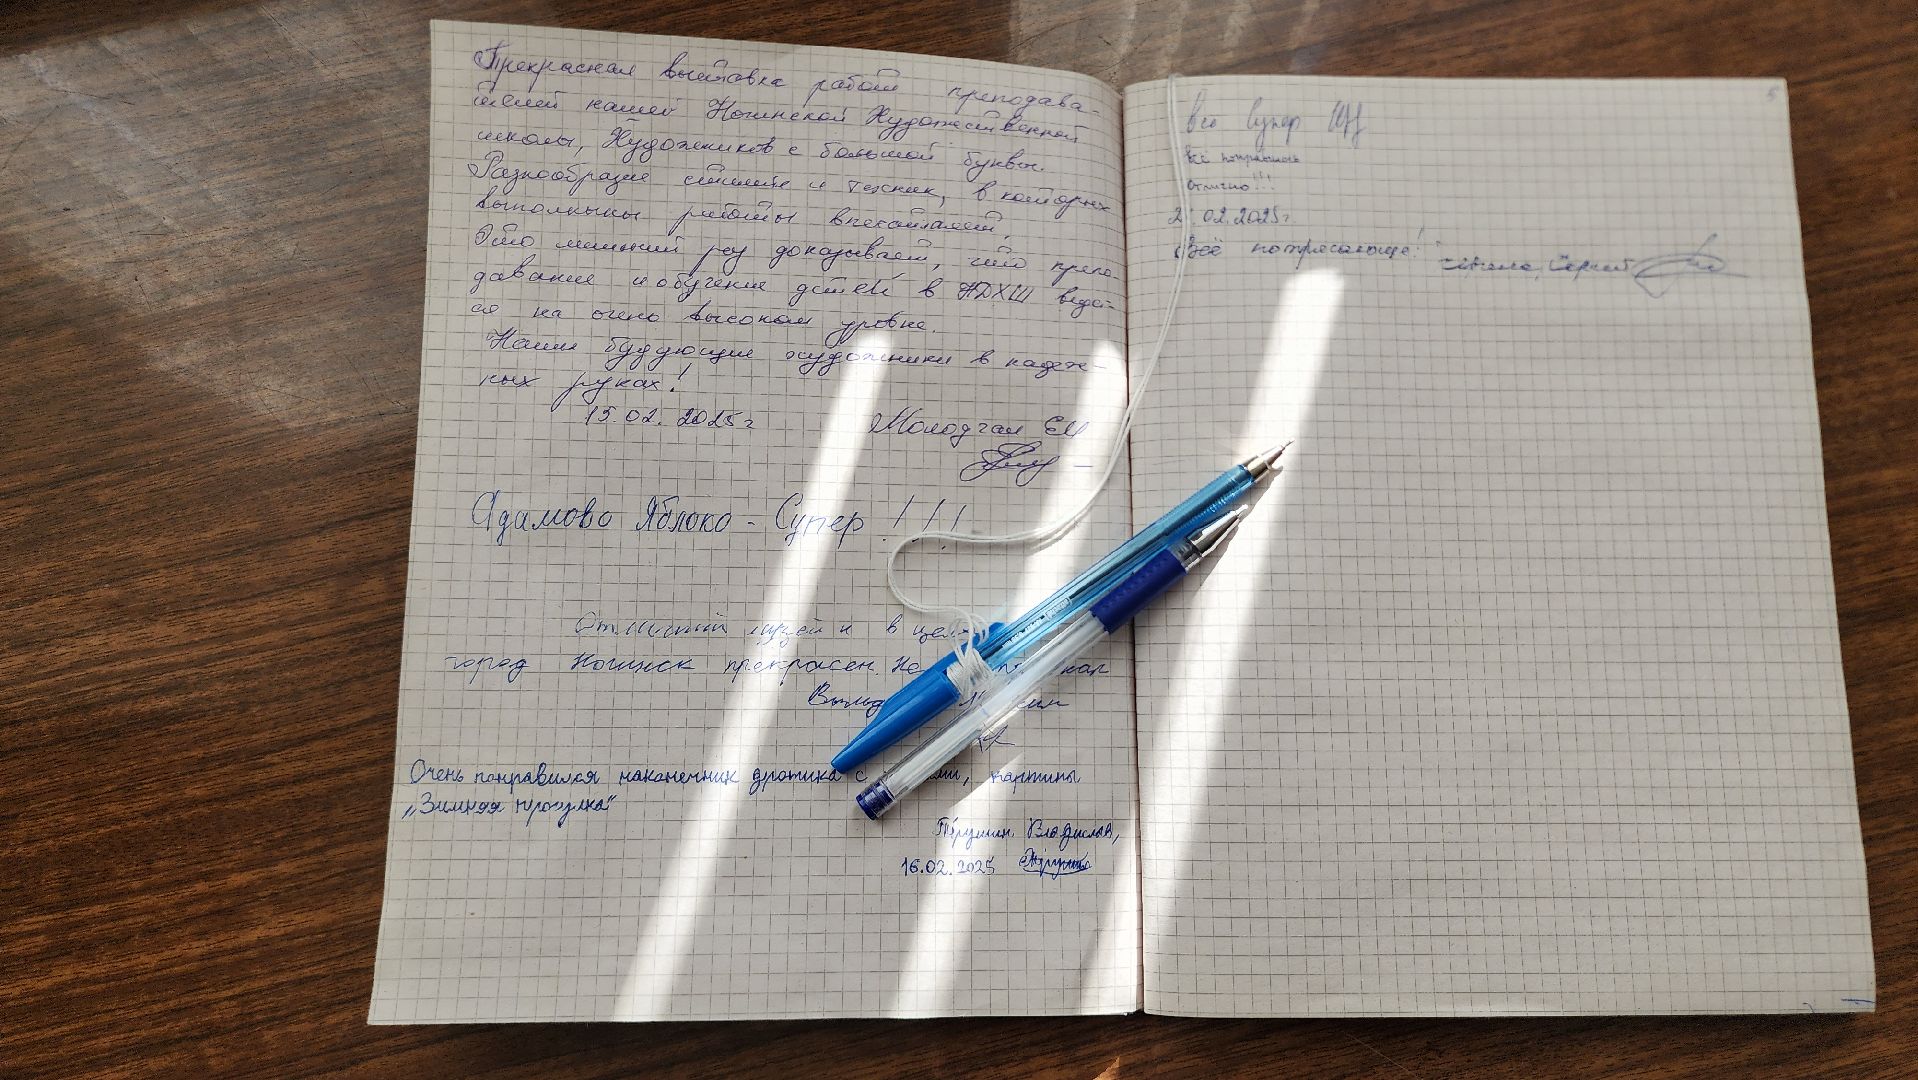 Прекрасная выставка работ преподава-
телей нашей Ногинской Художественной
школы, Художников с большой буквы.
Разнообразие стилей и техник, в которых
выполнены работы впечатляет.
Это лишний раз доказывает, что препо
давание и обучение детей в НДХШ ведёт-
ся на очень высоком уровне.
Наши будующие художники в надеж-
ных руках!
15.02.2025г Молодчая ЕИ
Адамово Яблоко - Супер !!!
Отличный музей и в
город Ногинск прекрасен.
Очень понравился наконечник дротика с картины
„Зимняя прогулка"
Владислав,
16.02.2025
Всё Супер
Всё понравилось
Отлично!!!
.02.2025г.
Всё потрясающе! Сергей